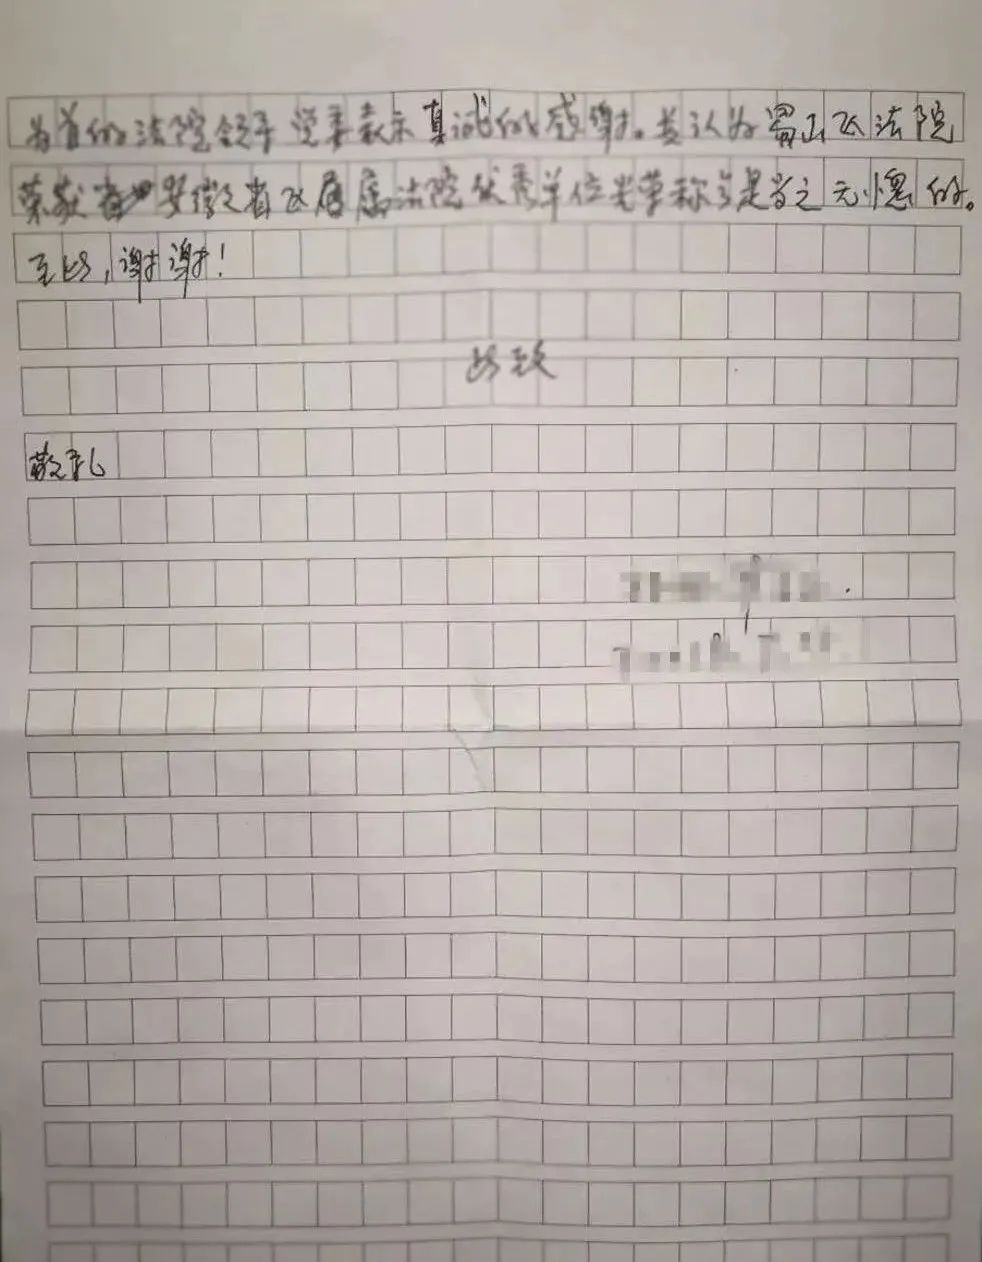 为首的法院领导 党委表示真诚的感谢。并认为蜀山区法院
荣获 安徽省区属法院优秀单位光荣称号是当之无愧的。
至此,谢谢!
此致
敬礼